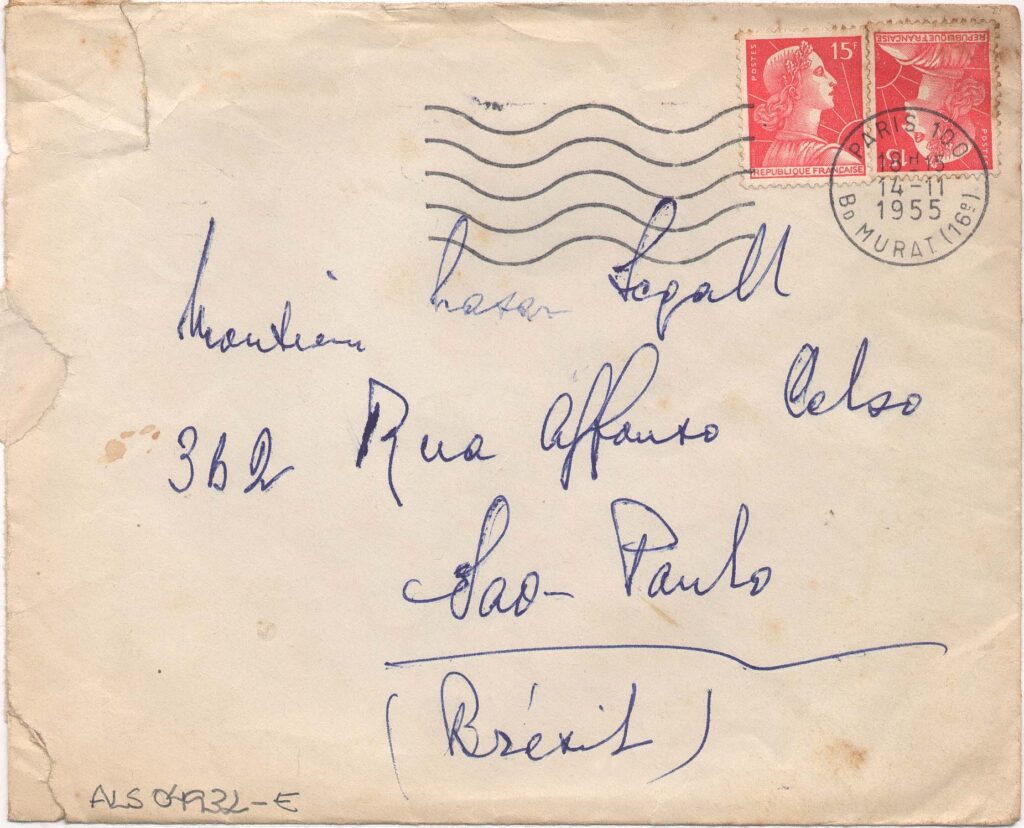 POSTES 15F
REPUBLIQUE FRANÇAISE
POSTES 15F
REPUBLIQUE FRANÇAISE
PARIS 100
18H15
14-11
1955
BD MURAT (16E)
Monsieur Lasar Segall
362 Rua Affonso Celso
Sao-Paulo
(Brésil)
ALS 04932-E